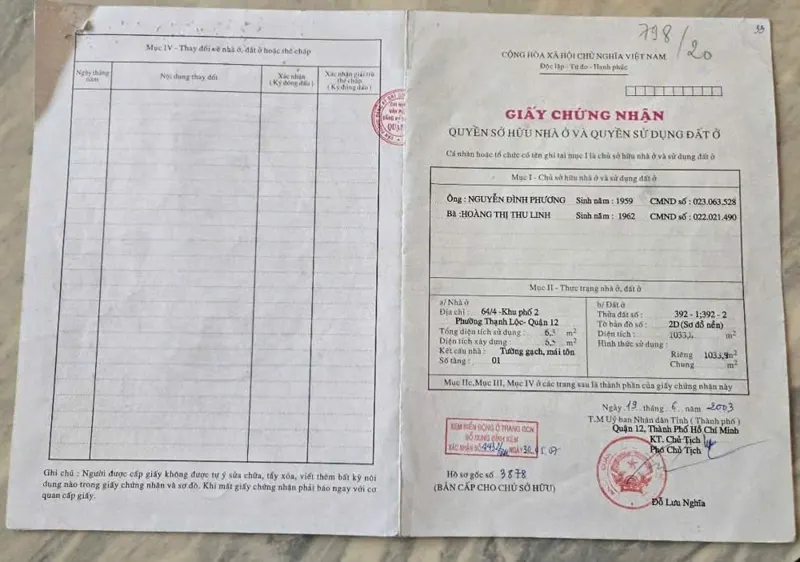 Mục IV - Thay đổi về nhà ở, đất ở hoặc thế chấp
Ngày tháng năm
Nội dung thay đổi
Xác nhận (Ký đóng dấu)
Xác nhận giải trừ thế chấp (Ký đóng dấu)
Ghi chú : Người được cấp giấy không được tự ý sửa chữa, tẩy xóa, viết thêm bất kỳ nội
dung nào trong giấy chứng nhận và sơ đồ. Khi mất giấy chứng nhận phải báo ngay với cơ
quan cấp giấy.
798/20
CỘNG HÒA XÃ HỘI CHỦ NGHĨA VIỆT NAM
Độc lập - Tự do - Hạnh phúc
GIẤY CHỨNG NHẬN
QUYỀN SỞ HỮU NHÀ Ở VÀ QUYỀN SỬ DỤNG ĐẤT Ở
Cá nhân hoặc tổ chức có tên ghi tại mục I là chủ sở hữu nhà ở và sử dụng đất ở
Mục I - Chủ sở hữu nhà ở và sử dụng đất ở
Ông : NGUYỄN ĐÌNH PHƯƠNG Sinh năm : 1959 CMND số : 023.063.528
Bà :HOÀNG THỊ THU LINH Sinh năm : 1962 CMND số : 022.021.490
Mục II - Thực trạng nhà ở, đất ở
a/ Nhà ở
Địa chỉ : 64/4 -Khu phố 2
Phường Thạnh Lộc- Quận 12
Tổng diện tích sử dụng : m2
Diện tích xây dựng : m2
Kết cấu nhà : Tường gạch, mái tôn
Số tầng : 01
b/ Đất ở
Thửa đất số : 392 - 1;392 - 2
Tờ bản đồ số : 2D (Sơ đồ nền)
Diện tích : m2
Hình thức sử dụng :
Riêng m2
Chung m2
Mục IIc, Mục III, Mục IV ở các trang sau là thành phần của giấy chứng nhận này
Ngày 19 tháng 6 năm 2003
T.M Uỷ ban Nhân dân Tỉnh ( Thành phố )
Quận 12, Thành Phố Hồ Chí Minh
KT. Chủ Tịch
Phó Chủ Tịch
XEM BIẾN ĐỘNG Ở TRANG
BỔ SUNG ĐÍNH KÈM
XÁC NHẬN SỐ NGÀY
Hồ sơ gốc số 3878
(BẢN CẤP CHO CHỦ SỞ HỮU)
Đỗ Lưu Nghĩa